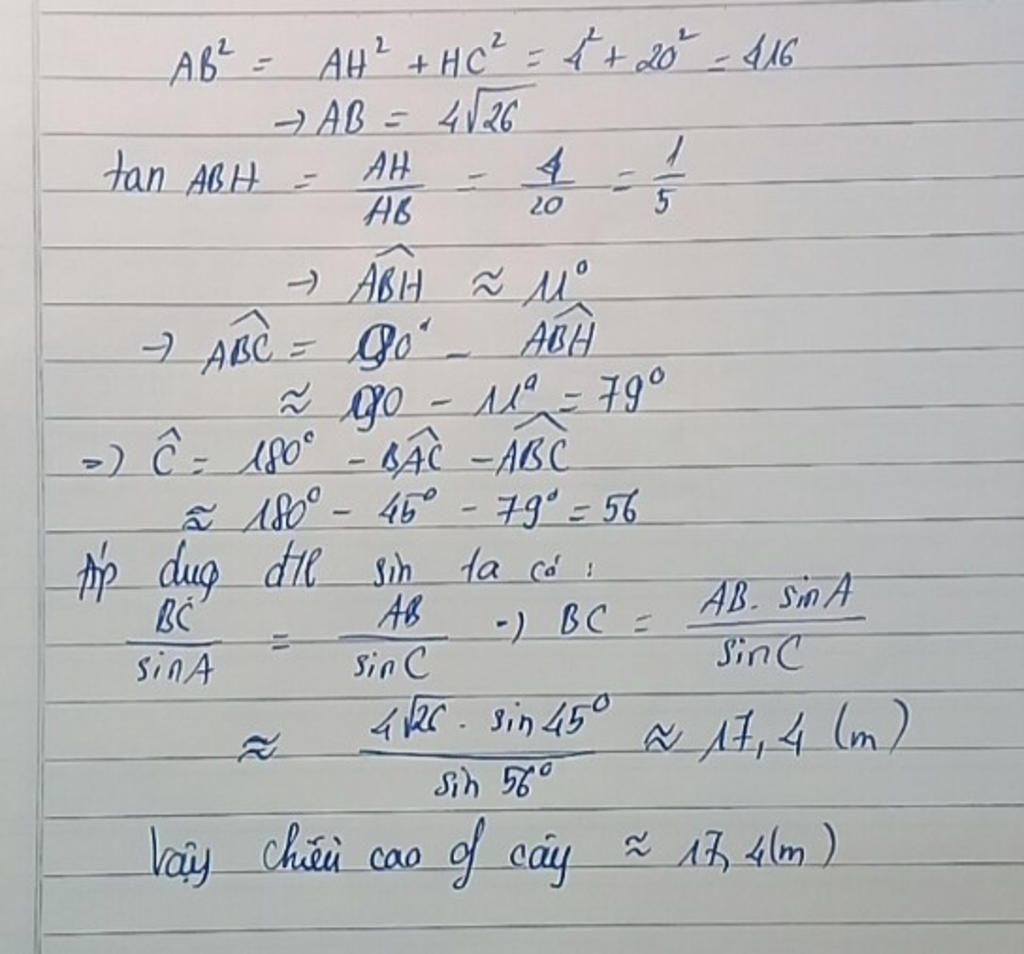 AB² = AH² + HC² = 4² + 20² = 416
→ AB = 4√26
tan ABH = AH/HB = 4/20 = 1/5
→ ABH ≈ 11°
→ ABC = 90° - ABH
≈ 90 - 11° = 79°
=> Ĉ = 180° - BAC - ABC
≈ 180° - 45° - 79° = 56
Áp dug đHl sin ta có :
BC/sinA = AB/sinC → BC = AB. sinA/sinC
≈ 4√26 . sin 45°/sin 56° ≈ 17,4 (m)
Vậy chiều cao of cây ≈ 17,4(m)